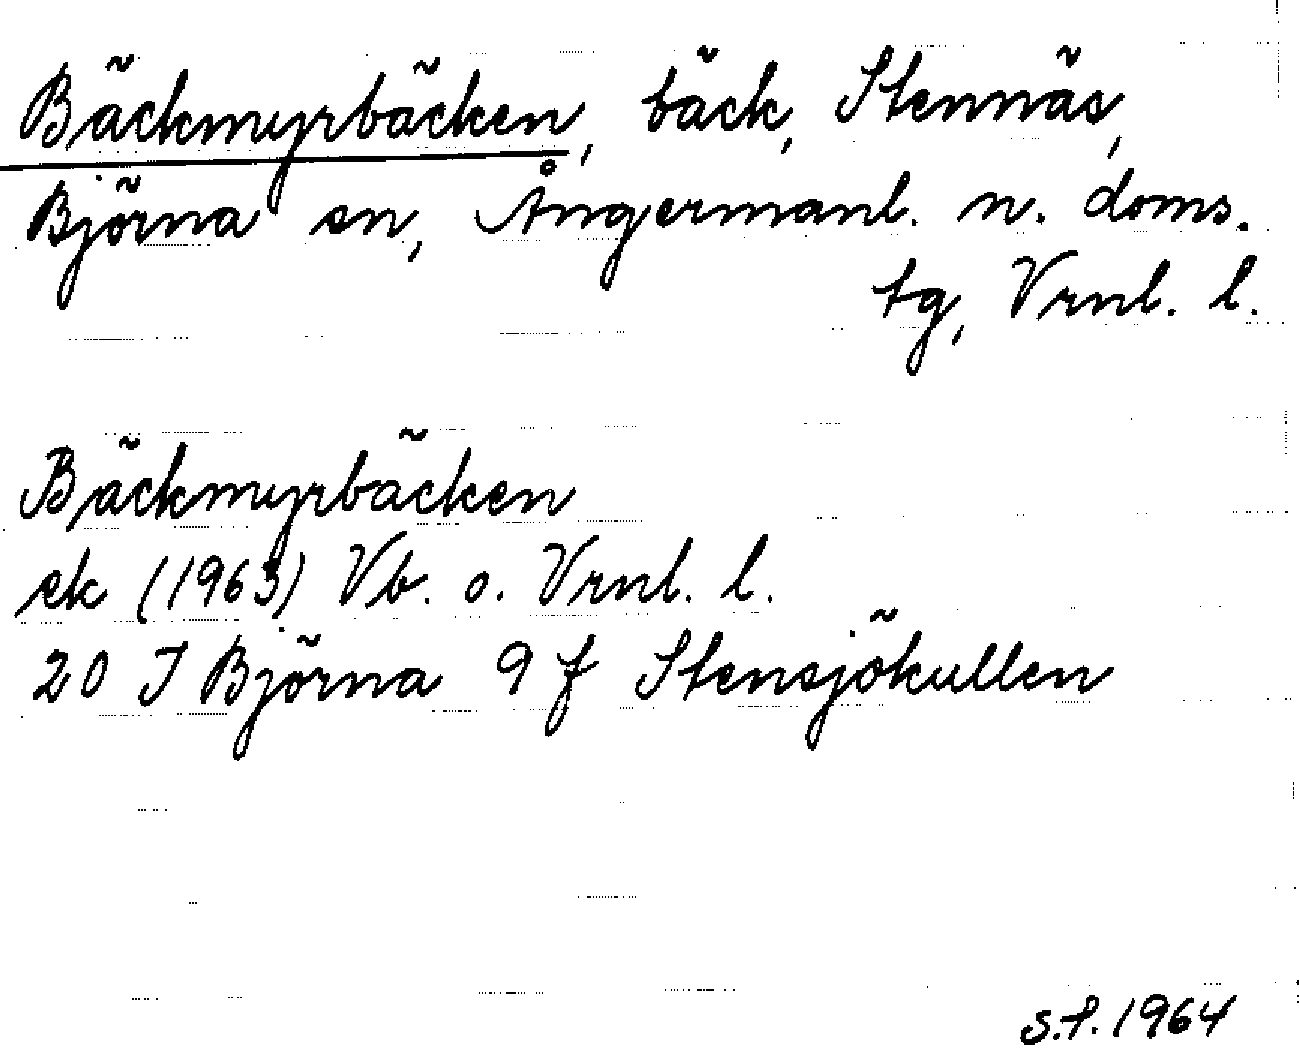 Bäckmyrbäcken, bäck, Stennäs,
Björna sn, Ångermanl. n. doms.
tg, Vrnl. l.
Bäckmyrbäcken
ek (1963) Vb. o. Vrnl. l.
20 J Björna 9 f Stensjökullen
S.P. 1964